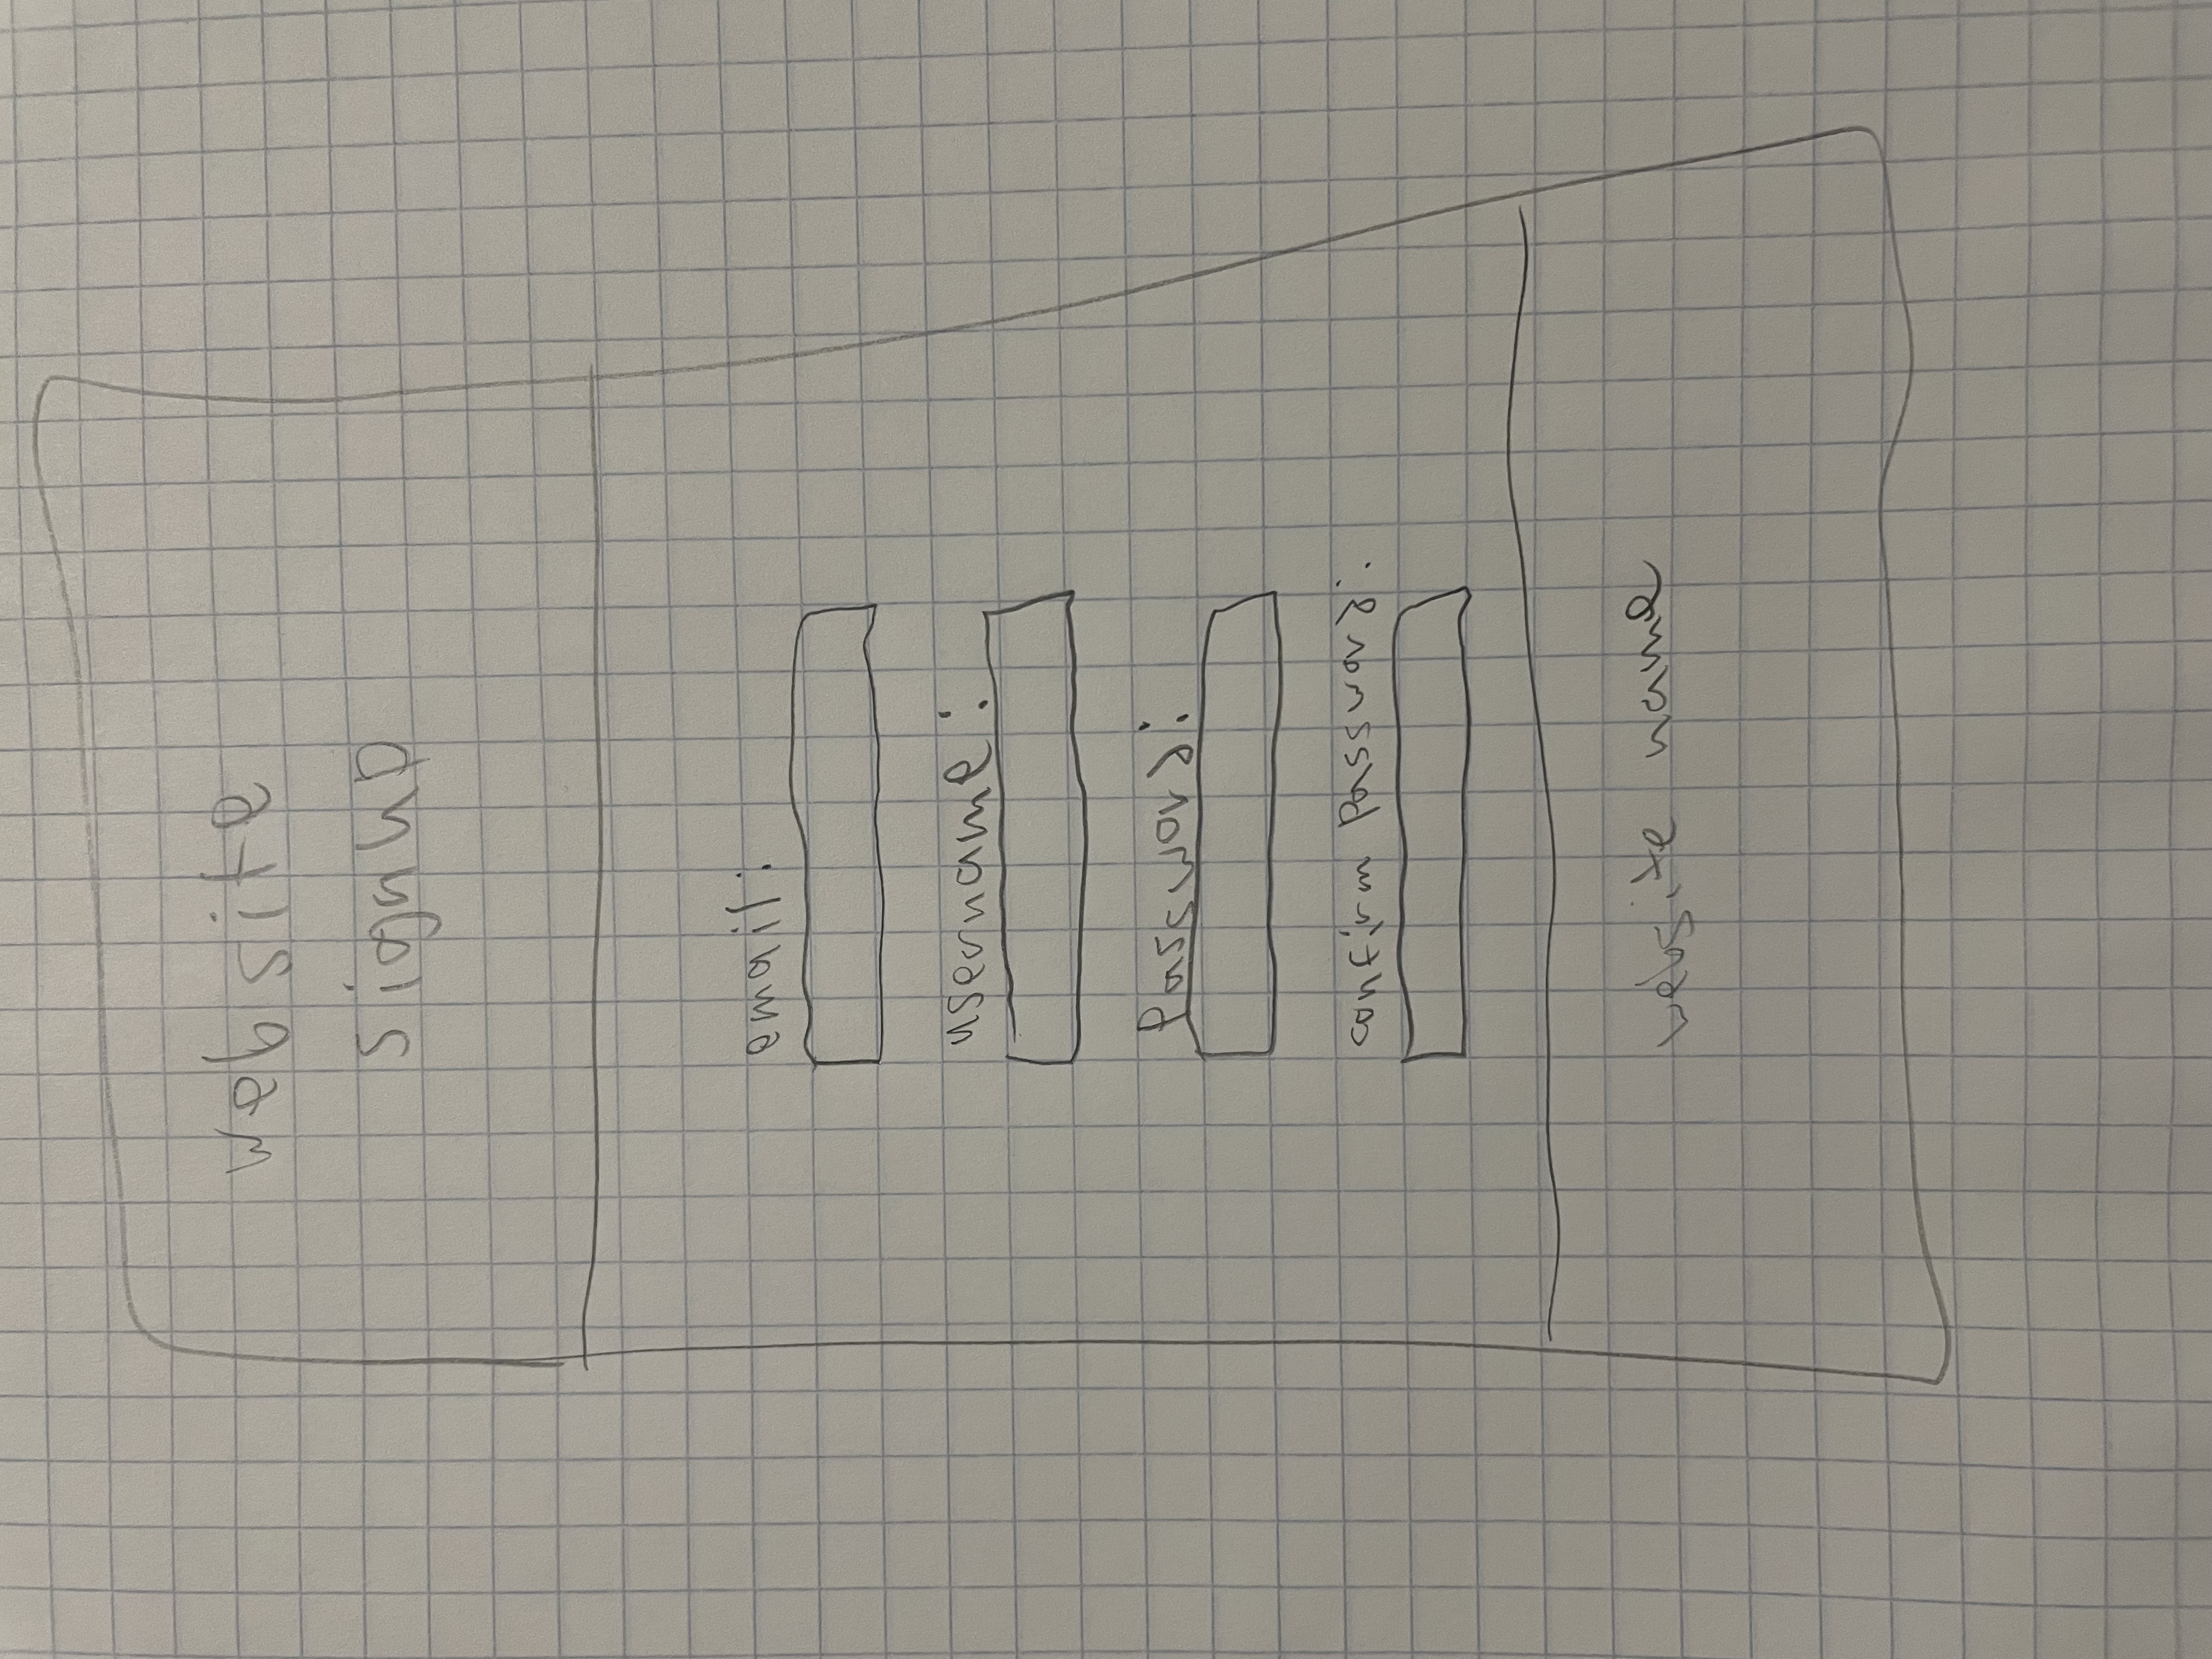 website
signup
email:
username:
Password:
confirm Password:
website name